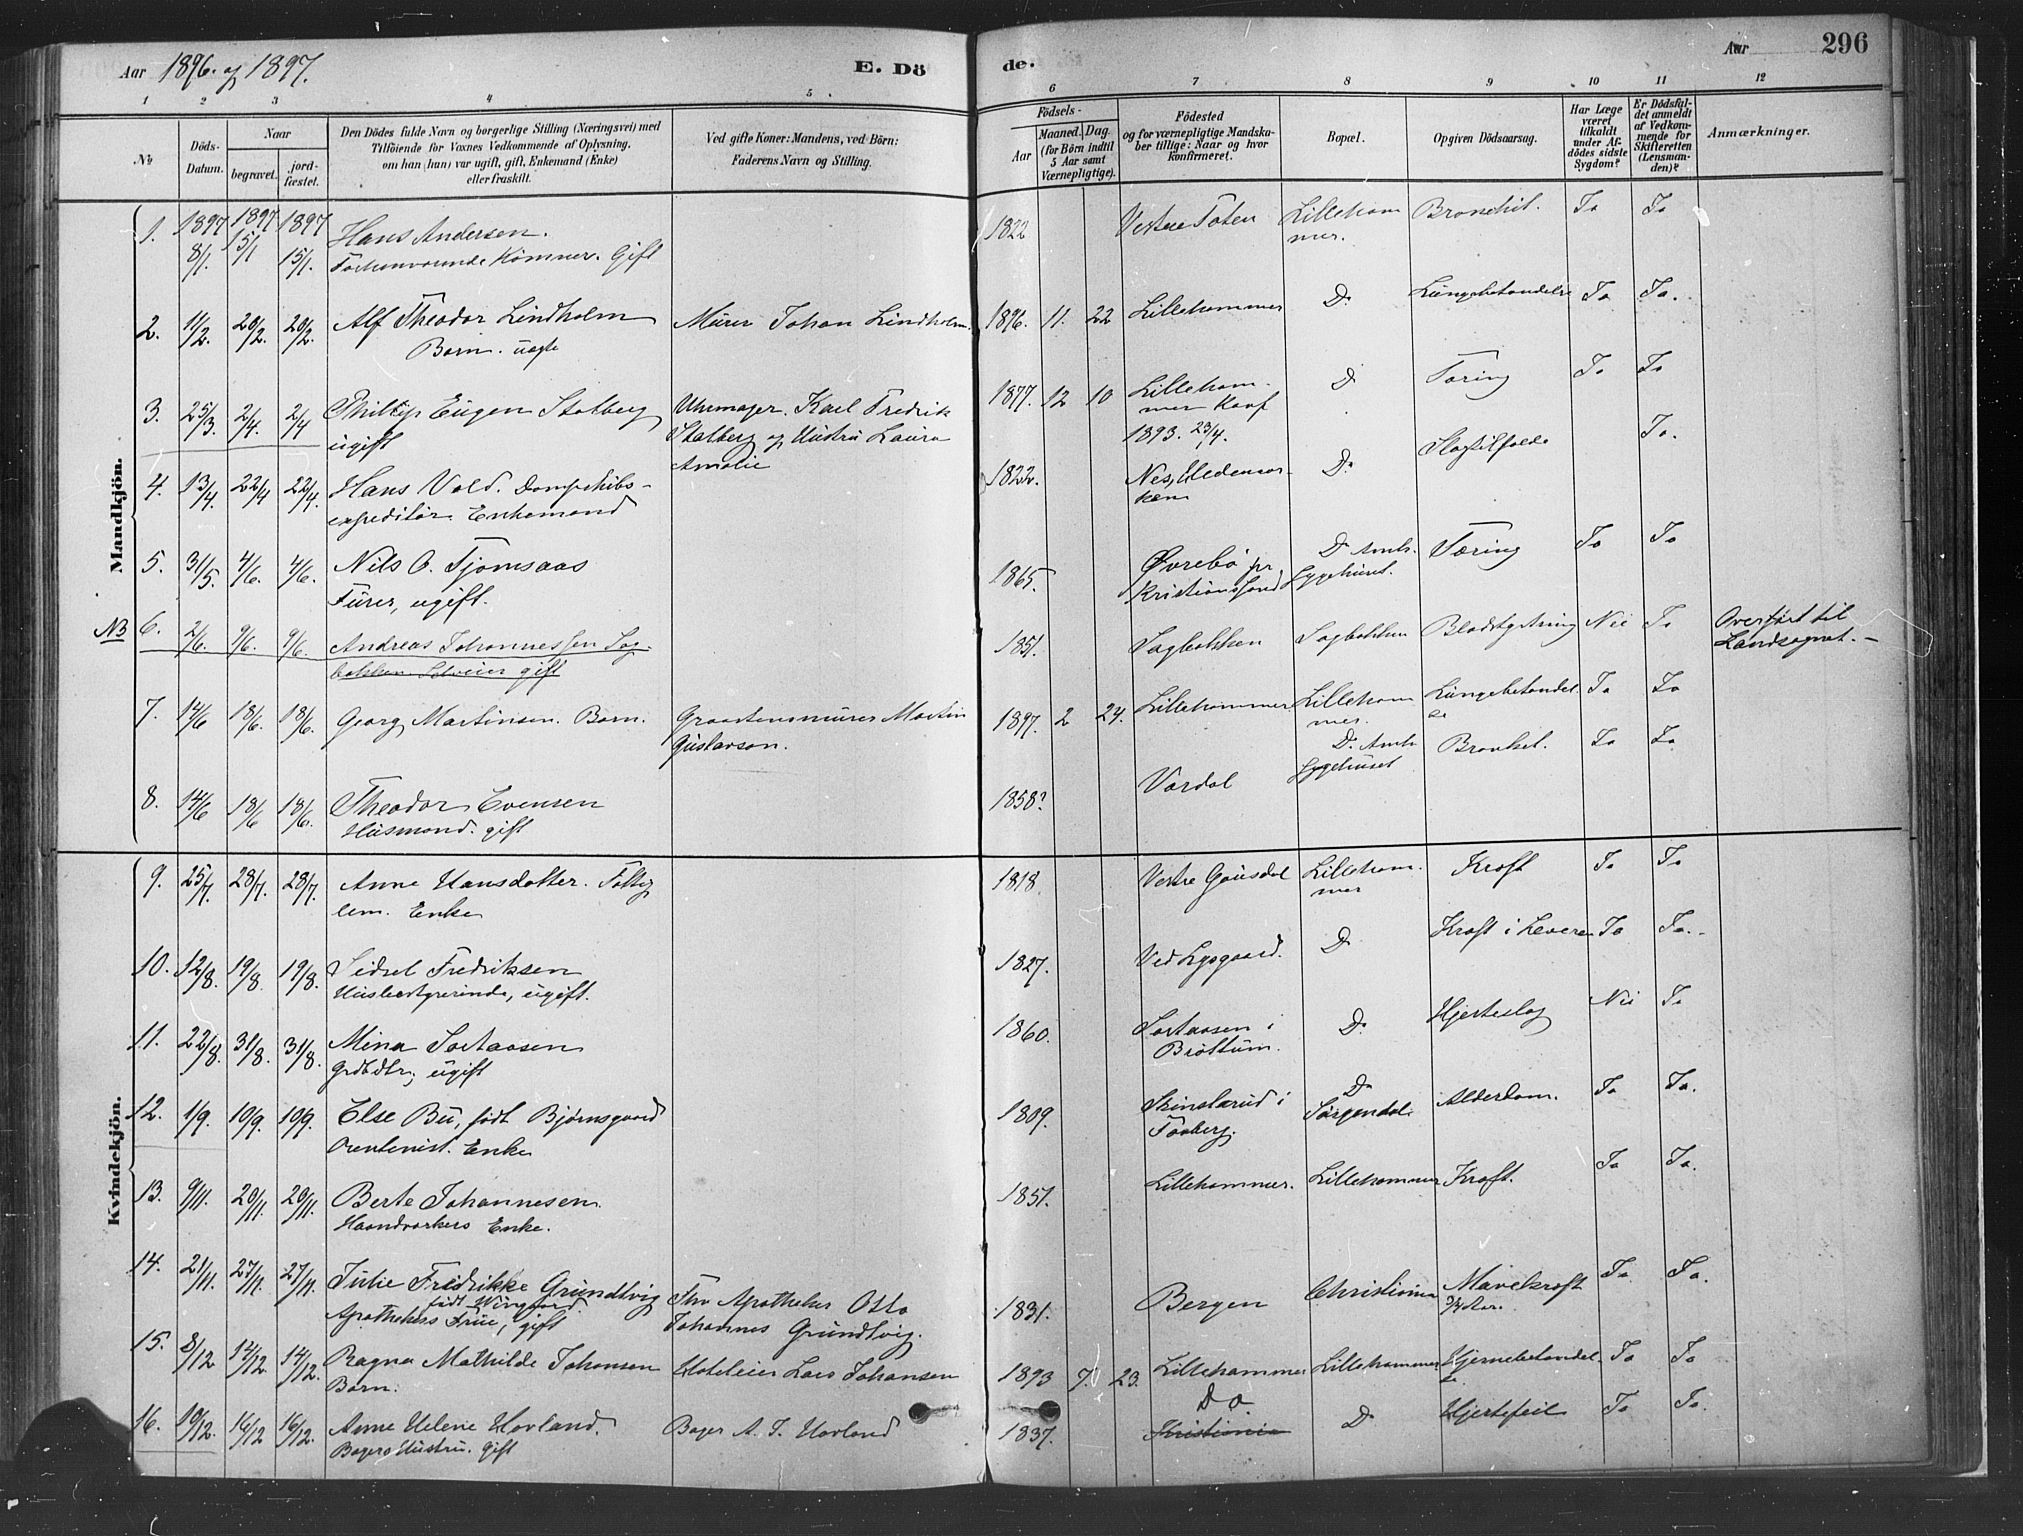 Aar 1896. og 1897.
E. Döde.
Aar
296
1 2 3 4 5 6 7 8 9 10 11 12
No
Döds-Datum.
Naar
begravet.
jord-fæstet.
Den Dödes fulde Navn og borgerlige Stilling (Næringsvei) med
Tilföiende for Voxnes Vedkommende af Oplysning.
om han (hun) var ugift, gift, Enkemand (Enke)
eller fraskilt.
Ved gifte Koner: Mandens, ved Börn:
Faderens Navn og Stilling.
Födsels-
Aar
Maaned. Dag.
(for Börn indtil
5 Aar samt
Værnepligtige).
Födested
og for værnepligtige Mandska-
ber tillige: Naar og hvor
konfirmeret.
Bopæl.
Opgiven Dödsaarsag.
Har Læge
været
tilkaldt
under Af-
dödes sidste
Sygdom?
Er Dödsfal-
det anmeldt
af Vedkom-
mende for
Skifteretten
(Lensman-
den)?
Anmærkninger.
Mandkjön.
1. 1897 8/1. 1897 15/1 1897 15/1. Hans Andersen. 1822 Vestre Toten Lillehammer. Bronchit. Ja Ja
Forhenværende Kæmner. Gift
2. 11/2. 20/2. 20/2. Alf Theodor Lindholm Murer Johan Lindholm. 1896. 11. 22 Lillehammer Do Lungebetændelse Ja Ja.
Barn. uægte
3. 25/3. 2/4. 2/4 Phillip Eugen Stolberg Uhrmager. Karl Fredrik 1877. 12 10 Lillehammer Konf Do Tæring Ja Ja
ugift Stolberg og Hustru Laura 1893. 23/4.
Amalie
4. 13/4. 22/4 22/4. Hans Vold. Dampskibs- 1822. Nes, Hedemarken Do Slagtilfælde Ja.
expeditør. Enkemand
5. 31/5. 4/6. 4/6. Nils O. Tjomsaas 1865. Øvrebø pr Kristianssand Do Amts. Sygehuset. Tæring Ja Ja
Furer, ugift.
NB 6. 2/6. 9/6. 9/6. Andreas Johannessen Sag- 1851. Sagbakken Sagbakken Blodstyrtning Nei Ja Overført til
bakken Selveier gift Landsognet. -
7. 14/6 18/6. 18/6. Georg Martinsen. Barn. Graastensmurer Martin 1897. 2 24. Lillehammer Lillehammer. Lungebetændelse Ja Ja
Gustavson.
8. 14/6 18/6 18/6. Theodor Evensen 1858? Vardal Do Amts Sygehuset Bronkit. Ja Ja.
Husmand. gift
Kvindekjön.
9. 25/7. 28/7. 28/7. Anne Hansdatter. Fattig 1818. Vestre Gausdal Lillehammer Kræft Ja Ja
lem. Enke
10. 12/8. 19/8. 19/8. Sidsel Fredriksen 1827. Ved Lysgaard. Do Kræft i Leveren Ja Ja.
Husbestyrerinde, ugift.
11. 22/8. 31/8. 31/8. Mina Sortaasen 1860. Sortaasen i Brøttum. Do Hjerteslag Nei Ja
Grdbdtr, ugift
12. 1/9. 10/9. 10/9. Else Bu, født Bjørnsgaard 1809. Skinslarud i Faaberg. Do Sørgendal. Alderdom. Ja Ja.
Rentenist. Enke
13. 9/11. 20/11. 20/11. Berte Johannesen 1851. Lillehammer. Lillehammer Kræft. Ja Ja.
Haandværkers Enke.
14. 21/11. 27/11. 27/11. Julie Fredrikke Grundtvig Fhv Apotheker Otto 1831. Bergen Christiania Mavekræft Ja Ja.
Apothekers Frue, gift Johannes Grundtvig.
15. 8/12 14/12. 14/12. Ragna Mathilde Johansen Hoteleier Lars Johansen 1893 7. 23. Lillehammer Lillehammer Hjernebetændelse Ja Ja
Barn.
16. 10/12. 16/12 16/12. Anne Helene Hovland. Bager A. J. Hovland 1837. Do Kristiania Do Hjertefeil Ja Ja.
Bagers Hustru. Gift